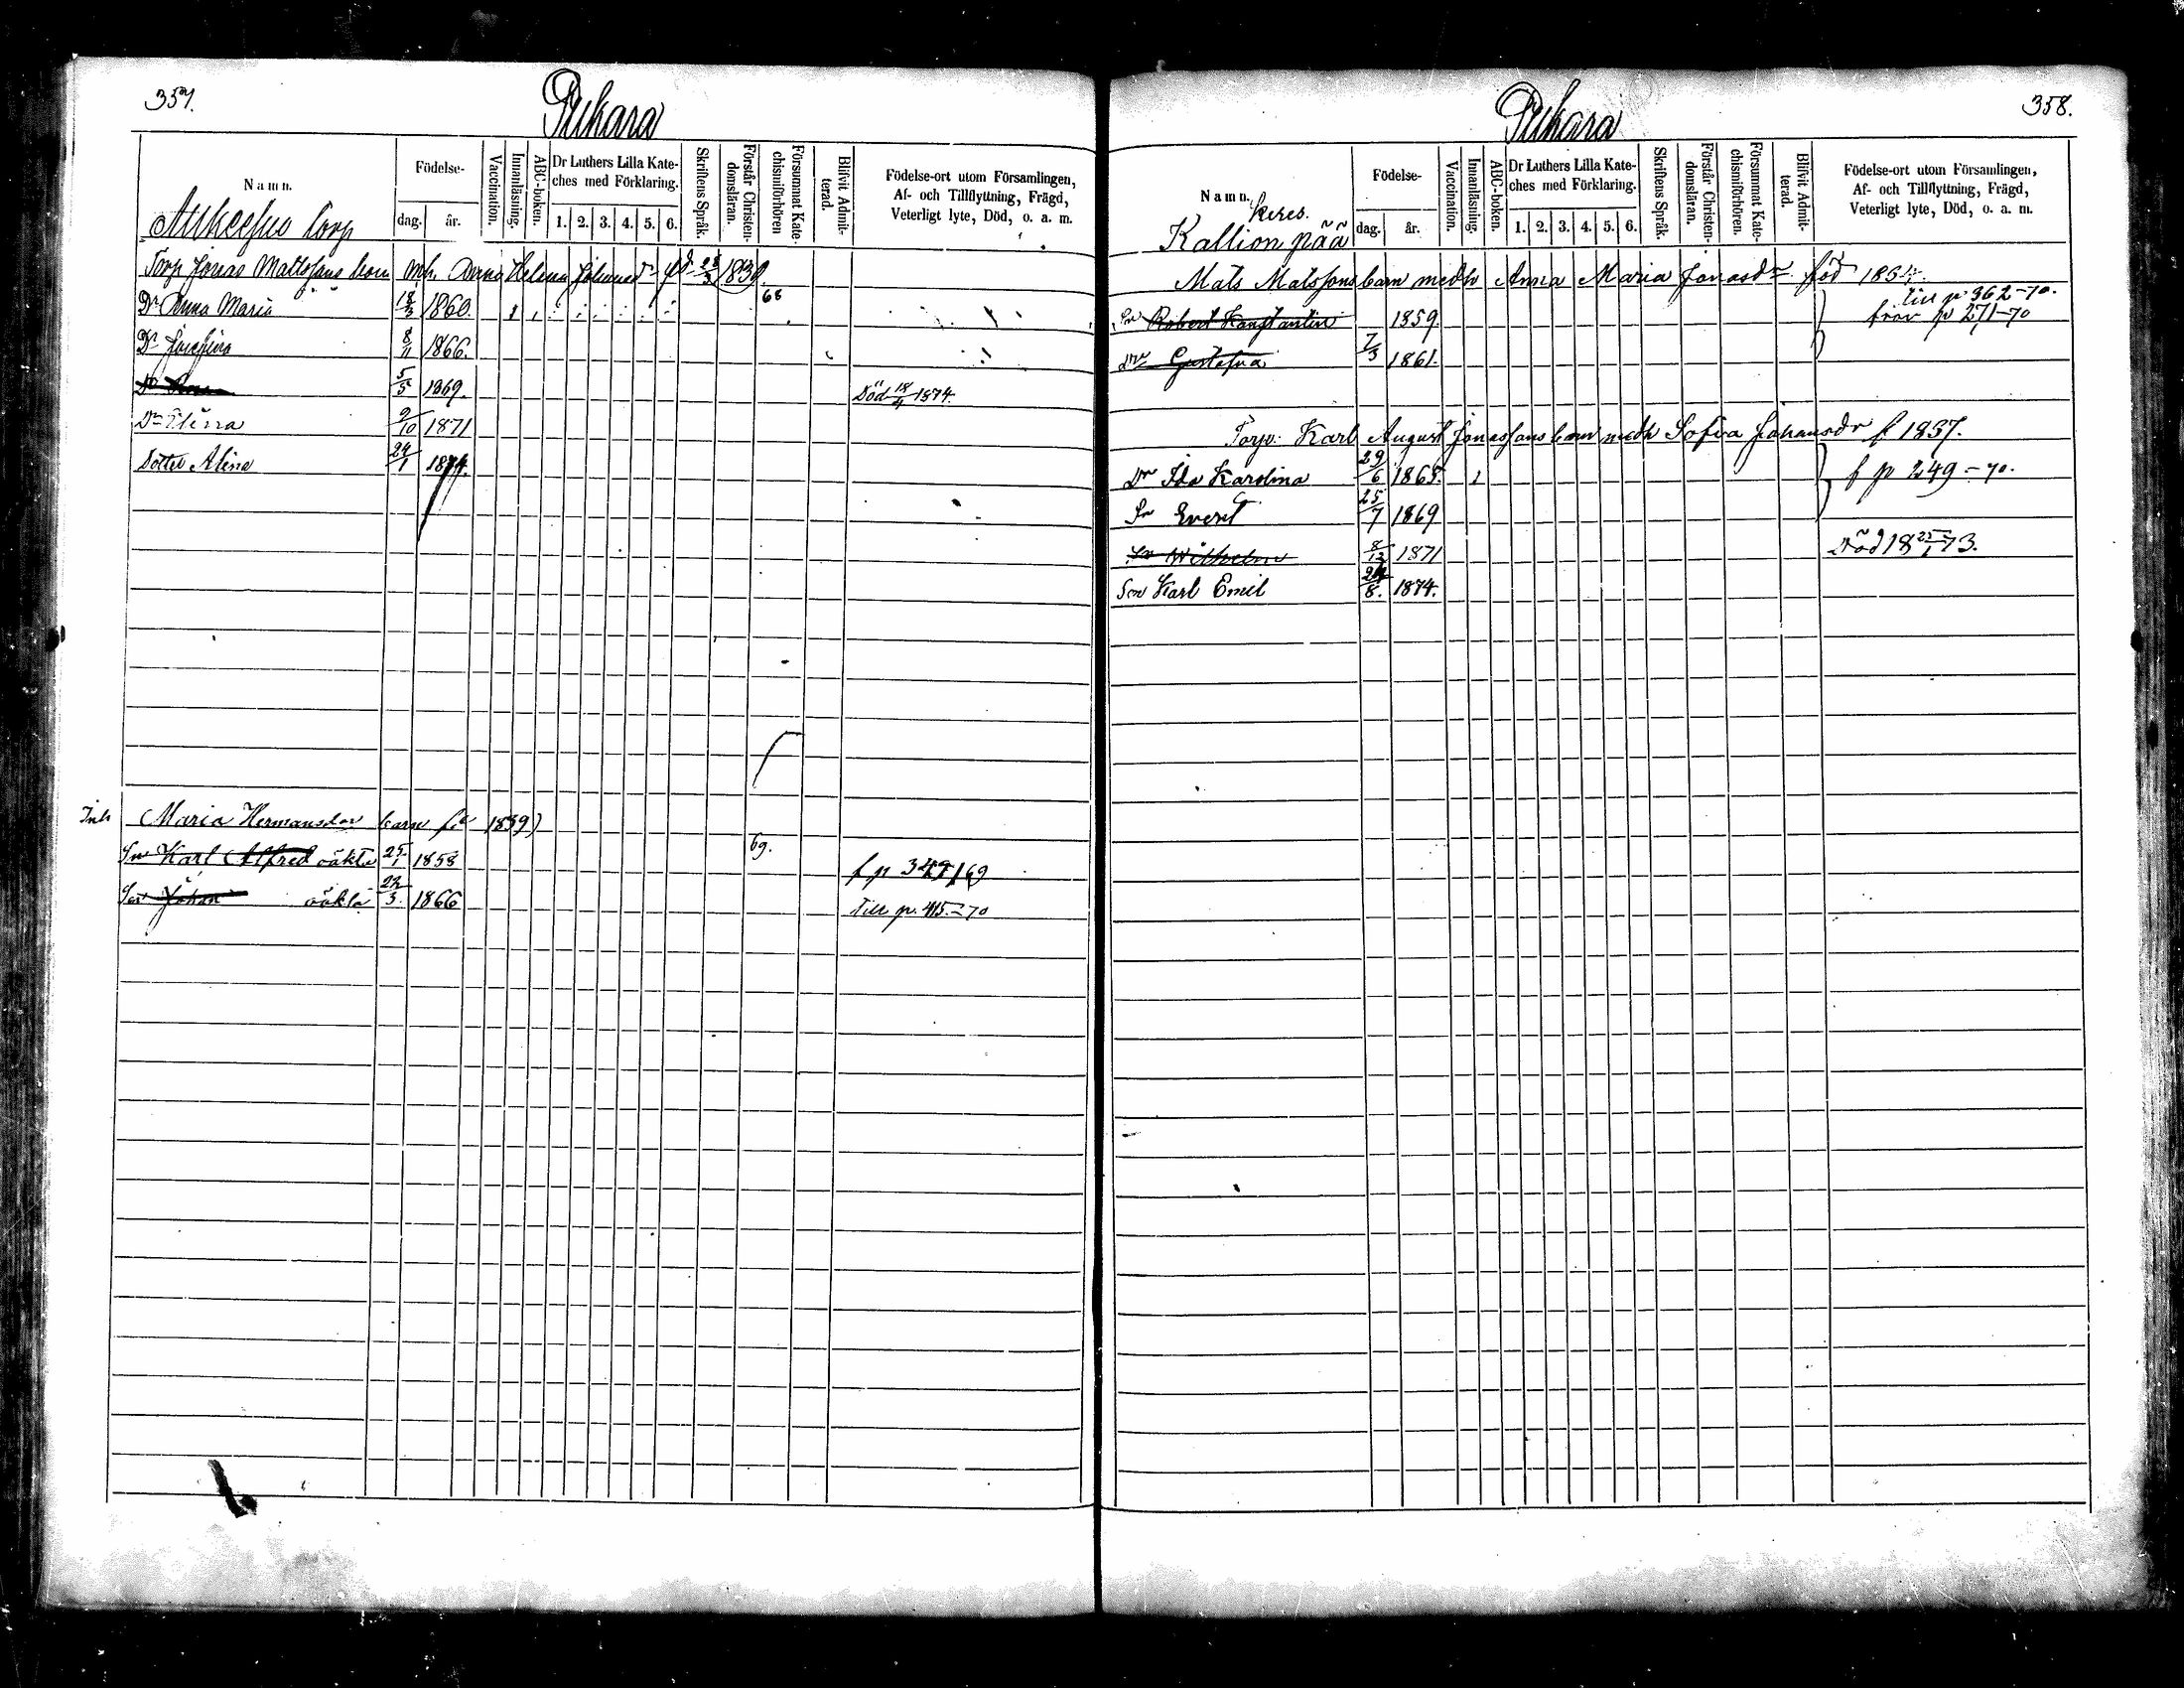 357.
Pukara
Namn.
Födelse-
dag.
år.
Vaccination.
Innanläsning.
ABC-boken.
Dr Luthers Lilla Kate-
ches med Förklaring.
1. 2. 3. 4. 5. 6.
Skriftens Språk.
Förstår Christen-
domsläran.
Försummat Kate-
chismiförhören
Blifvit Admit-
terad.
Födelse-ort utom Församlingen,
Af- och Tillflyttning, Frägd,
Veterligt lyte, Död, o. a. m.
torp
Torp Jonas Mattssons barn mh. Anna Helena Johansdr fd 28/3 1839.
Dr Anna Maria 18/3 1860. 68
Dr Josefina 8/11 1866.
Dr 5/5 1869. Död 18/4 1874.
Dr Elina 9/10 1871
Dotter Alina 24/1 1874.
Inh Maria Hermansdr barn fd 1839)
Sn Karl Alfred oäkta 25/1 1858 69. f p 347/69
Son Johan oäkta 22/3. 1866 Till p. 415.-70
358.
Pukara
Namn.
Födelse-
dag.
år.
Vaccination.
Innanläsning.
ABC-boken.
Dr Luthers Lilla Kate-
ches med Förklaring.
1. 2. 3. 4. 5. 6.
Skriftens Språk.
Förstår Christen-
domsläran.
Försummat Kate-
chismiförhören.
Blifvit Admit-
terad.
Födelse-ort utom Församlingen,
Af- och Tillflyttning, Frägd,
Veterligt lyte, Död, o. a. m.
keres.
Kallion pää
Mats Matssons barn medh Anna Maria Jonasdr föd
till p 362-70.
Sn Robert Konstantin 1859. från p 271-70
Dr Gustafva 7/3 1861.
Torp. Karl August Jonassons barn medh Sofia Johansdr f. 1837.
Dr Ida Karolina 29/6 1865. 1 f p 249-70.
Sn Evert 25/7 1869
Sn Wilhelm 8/12 1871 Död 18 25/1 73.
Son Karl Emil 24/8. 1874.